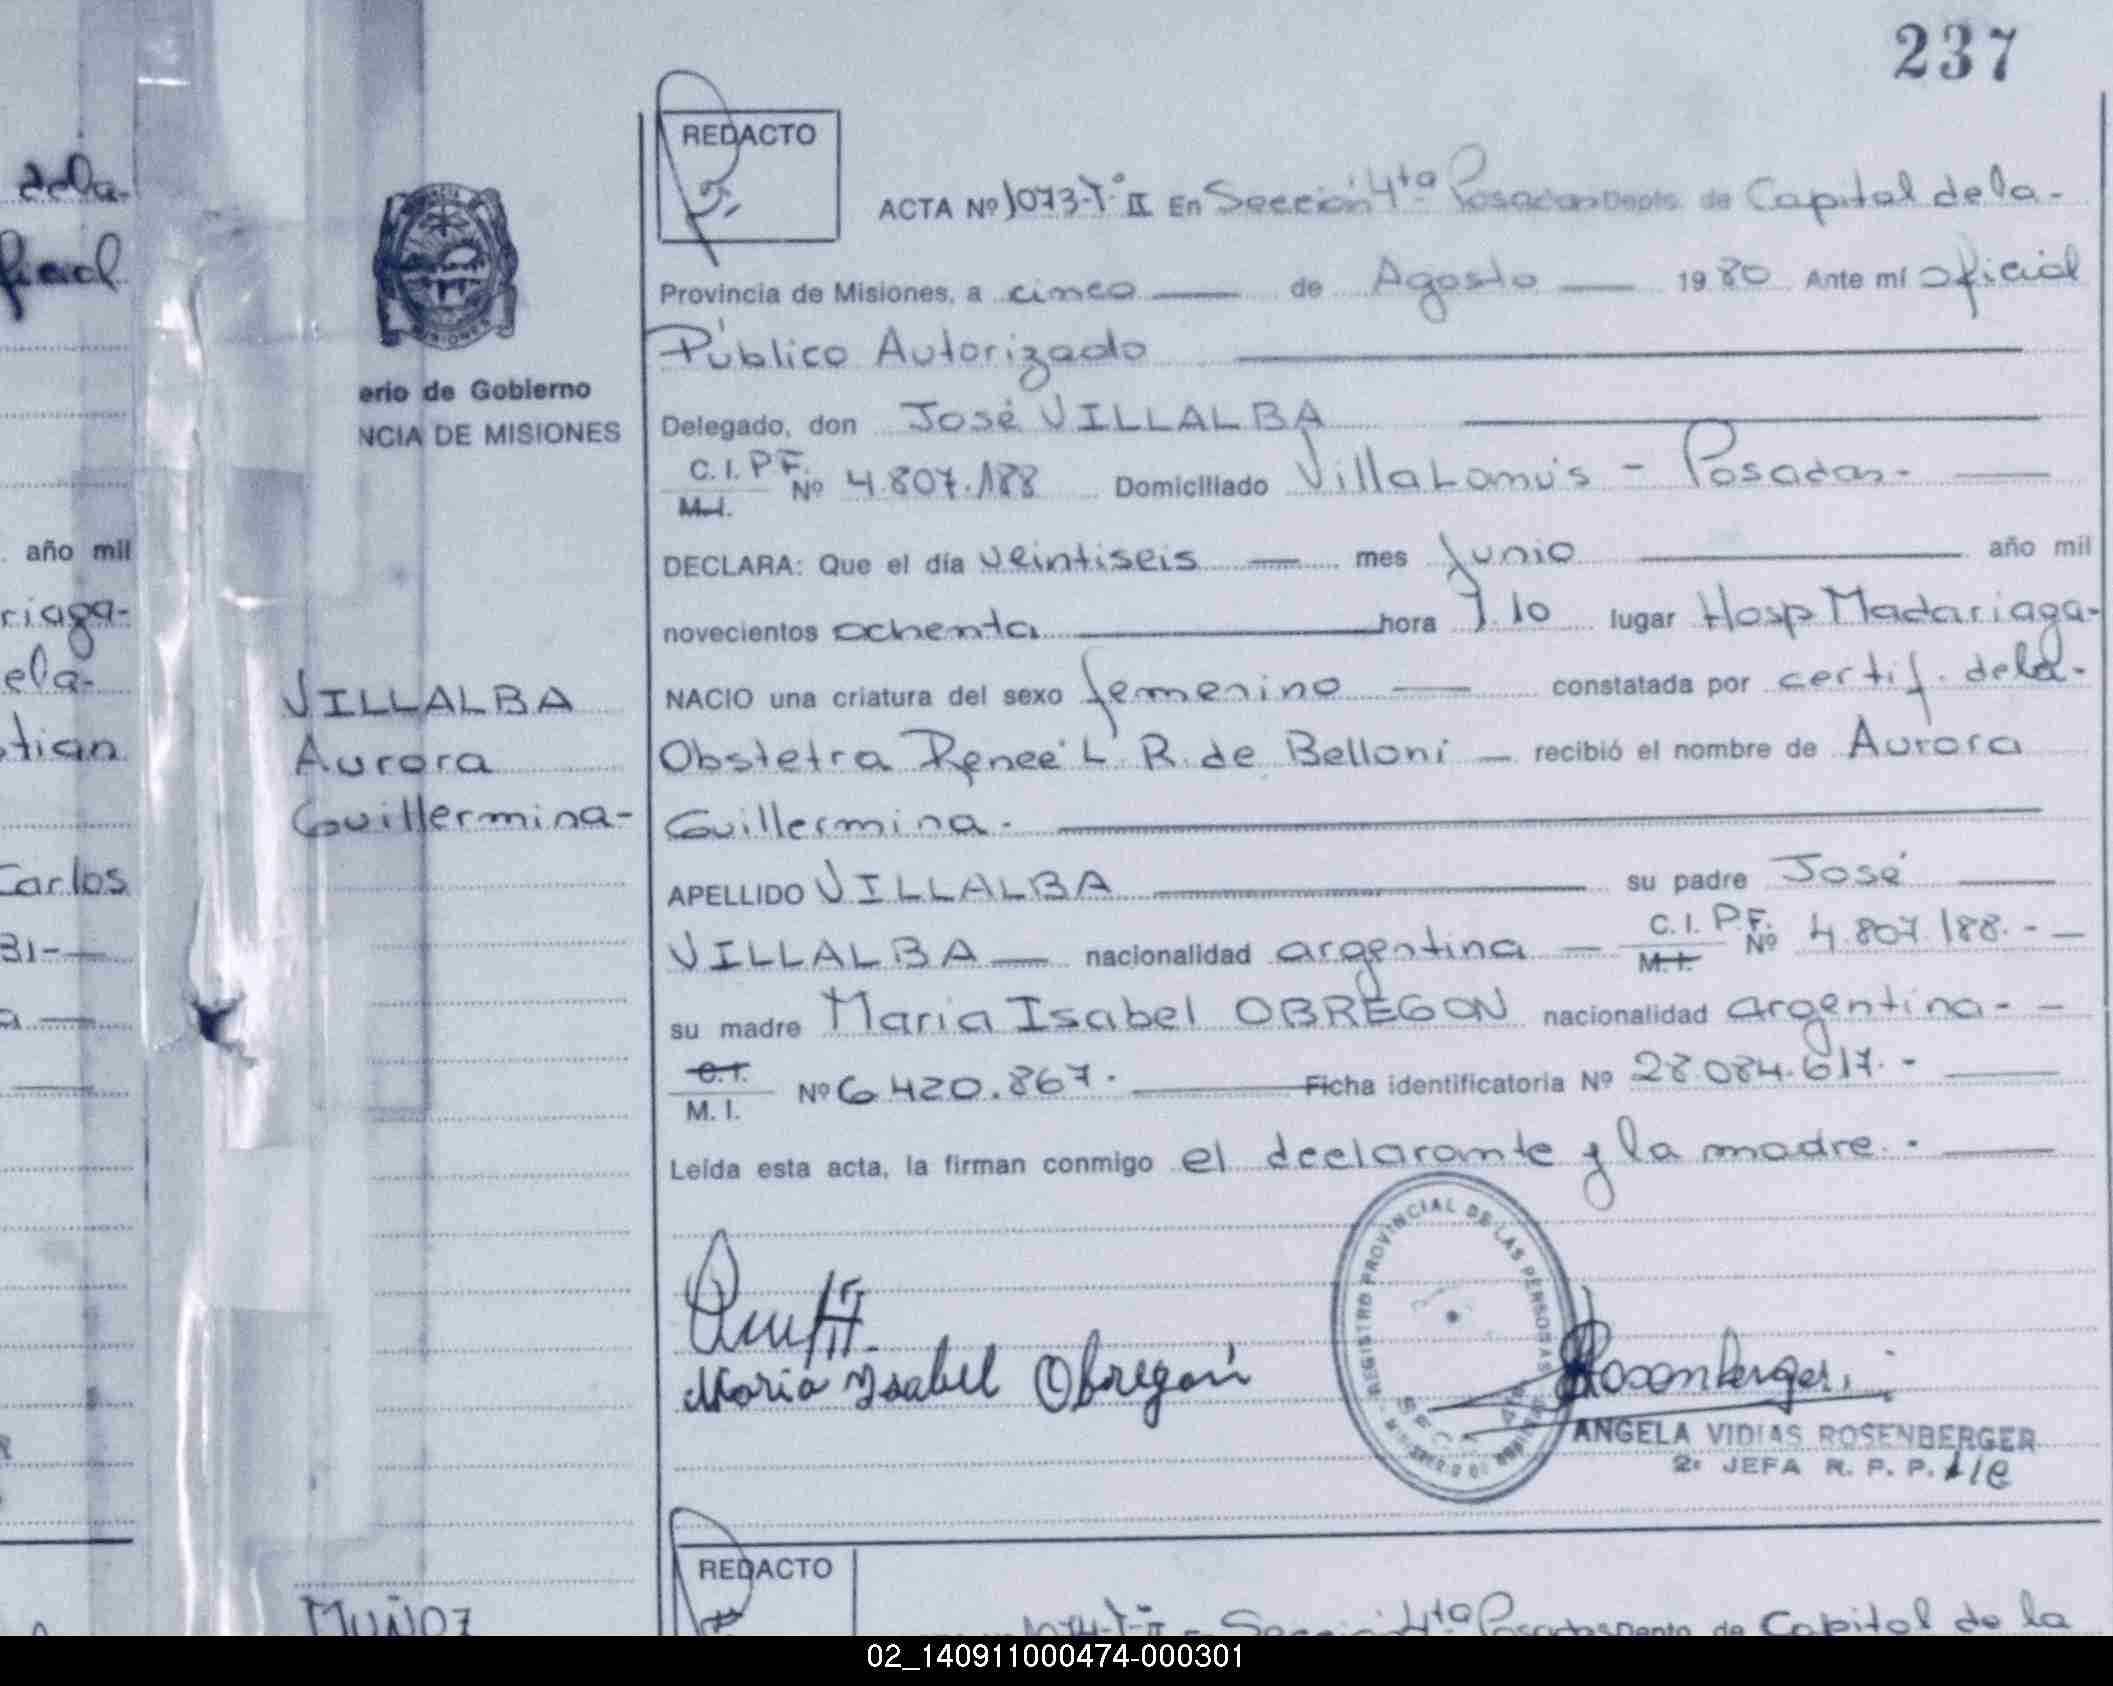 237
REDACTO
ACTA Nº 1073-Tº II En Sección 4ta Posadas Depto. de Capital de la-
Provincia de Misiones, a cinco de Agosto 1980 Ante mí oficial
Público Autorizado
Delegado, don José VILLALBA
C. I. P F.
M. I.
Nº 4.807.188 Domiciliado Villa Lanús - Posadas-
DECLARA: Que el día veintiseis mes Junio año mil
novecientos ochenta hora 7.10 lugar Hosp Madariaga-
NACIO una criatura del sexo femenino constatada por certif. de la-
Obstetra Reneé L R. de Belloni recibió el nombre de Aurora
Guillermina-
APELLIDO VILLALBA su padre José
VILLALBA nacionalidad argentina C. I. P.F.
M. I.
Nº 4.807.188.-
su madre Maria Isabel OBREGON nacionalidad argentina-
C. I.
M. I.
Nº 6.420.867. Ficha identificatoria Nº 28.084.617.-
Leída esta acta, la firman conmigo el declarante y la madre.-
Maria Ysabel Obregón
Rosenberger
REGISTRO PROVINCIAL DE LAS PERSONAS
ANGELA VIDIAS ROSENBERGER
2ª JEFA R. P. P. A/C
erio de Gobierno
NCIA DE MISIONES
VILLALBA
Aurora
Guillermina-
de la-
ficial
año mil
riaga-
ela-
tian
Carlos
31-
a
REDACTO
1074-Tº II Sección 4ta Posadas Depto. de Capital de la
MUÑOZ
02_140911000474-000301